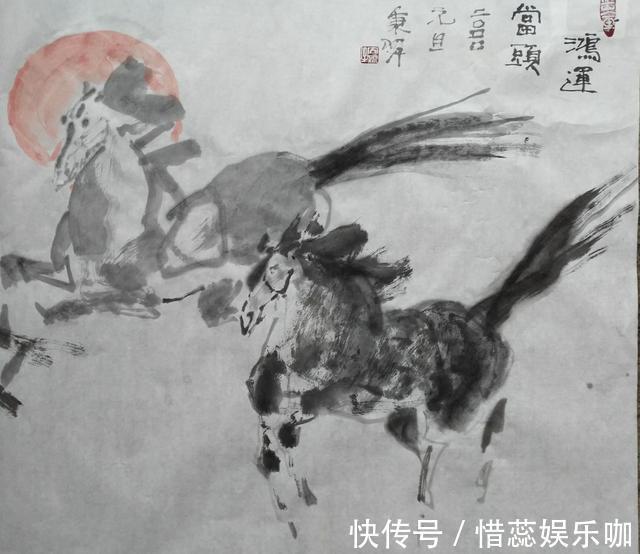 鴻運
當頭
二〇〇〇
元旦
快传号 / 惜蕊娱乐咖